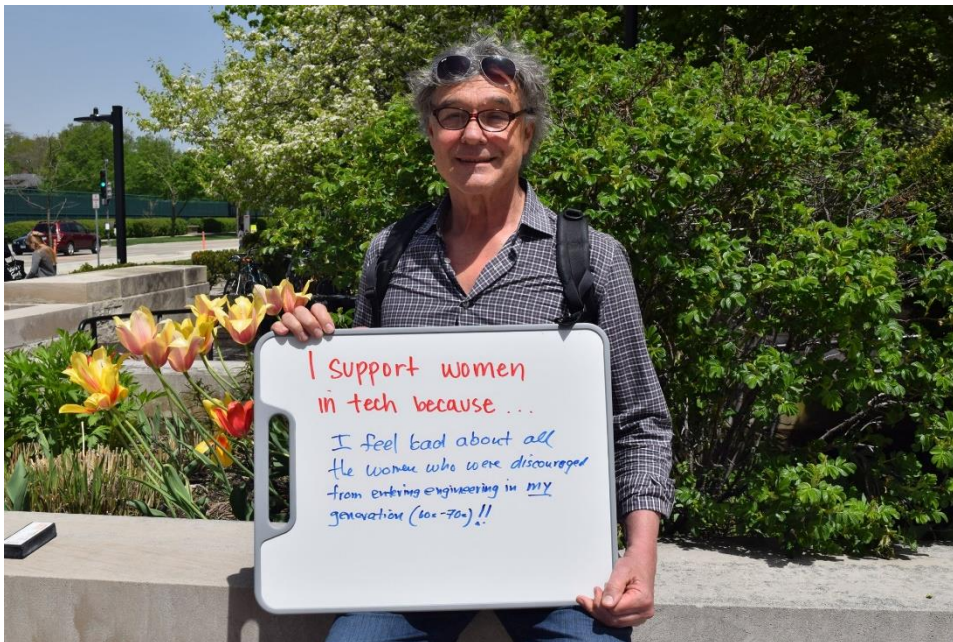 I support women
in tech because ...
I feel bad about all
the women who were discouraged
from entering engineering in my
generation (60s-70s) !!